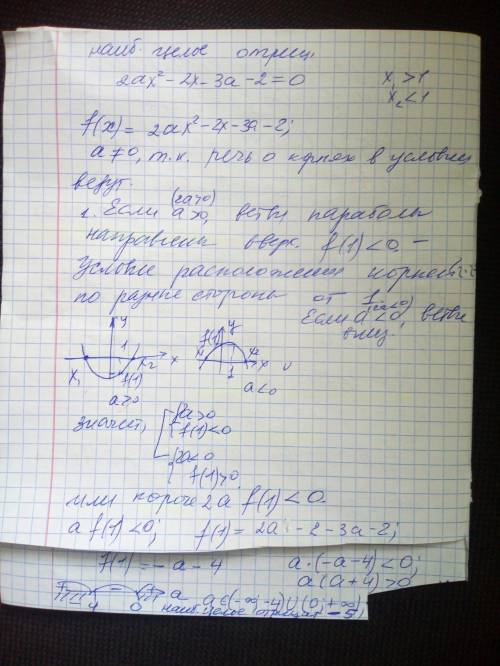 наиб. целое отриц.
2ax² - 2x - 3a - 2 = 0    x₁ > 1
x₂ < 1
f(x) = 2ax² - 2x - 3a - 2;
a ≠ 0, т.к. речь о корнях в условии
ведут.
1. Если (2a>0) a>0, ветви параболы
направлены вверх. f(1) < 0. –
условие расположения корней
по разные стороны от 1
Если (2a<0) a<0, ветви
вниз,
y f(1) y
1 x₂ x x₁ 1 x₂ x
x₁ f(1)
a>0 a<0
значит, 2a>0
f(1)<0
2a<0
f(1)>0
или короче 2a f(1) < 0.
a f(1) < 0; f(1) = 2a - 2 - 3a - 2;
f(1) = -a - 4    a·(-a-4) < 0;
a(a+4) > 0
+ - + a a∈(-∞; -4)∪(0; +∞)
-4 0 наиб. целое отрицат. -5